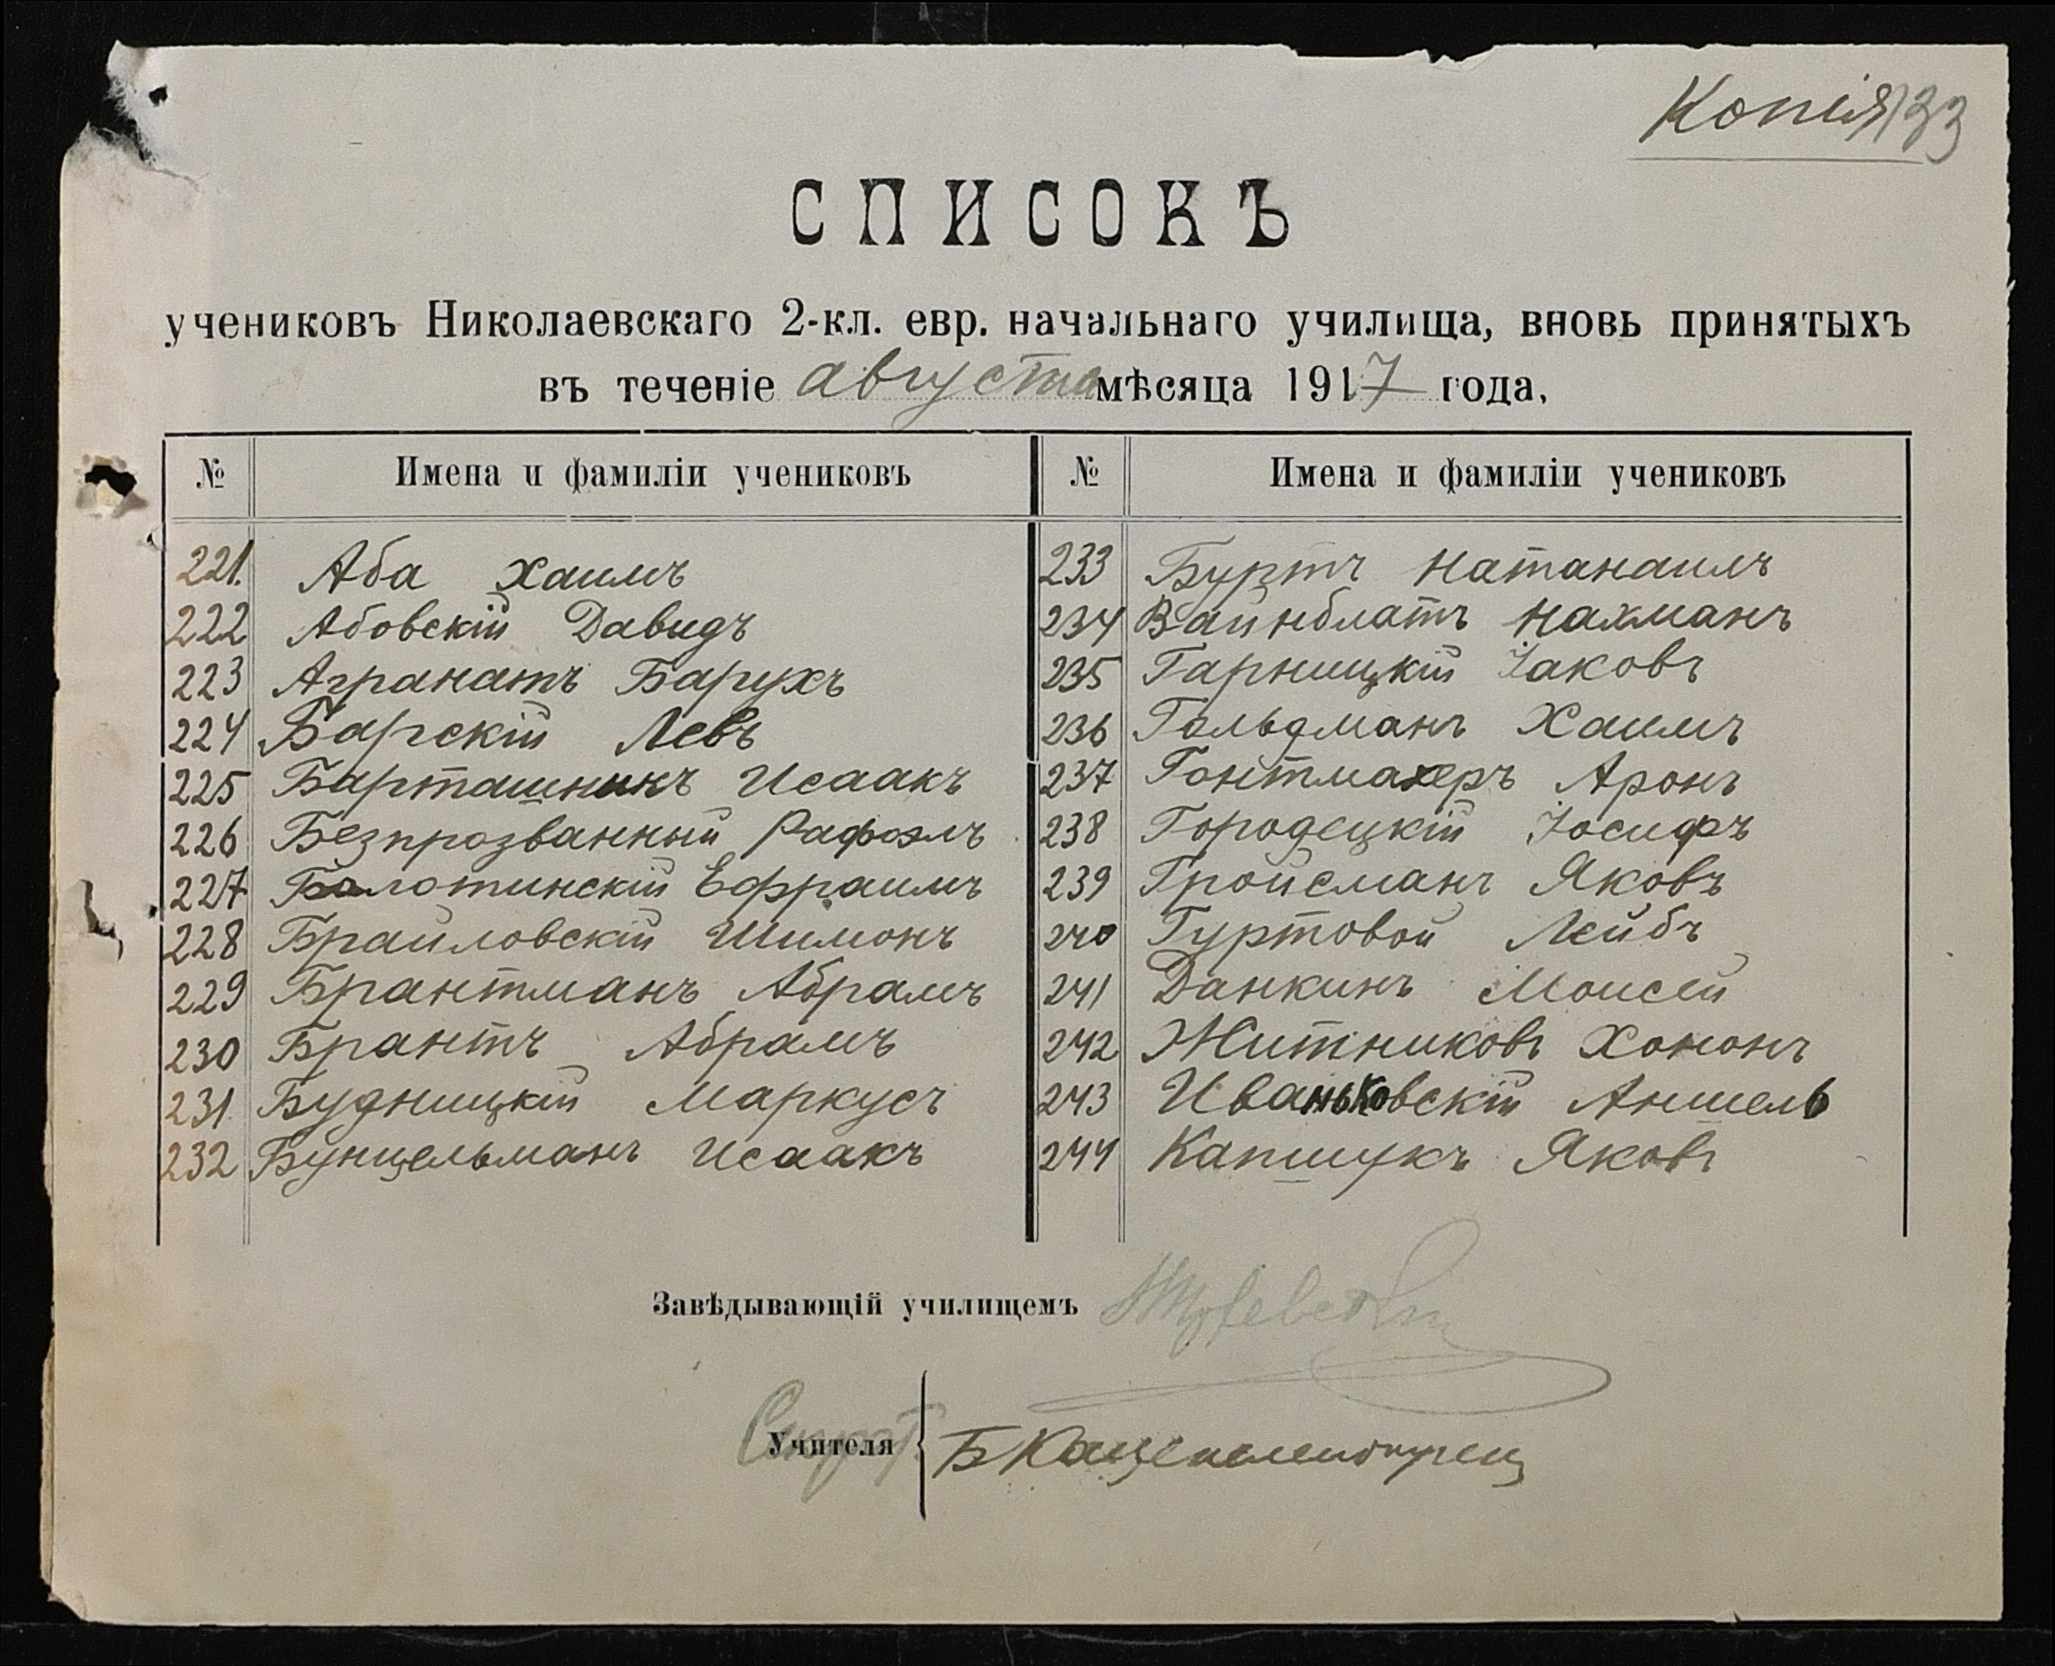 Копія 133
СПИСОКЪ
учениковъ Николаевскаго 2-кл. евр. начальнаго училища, вновь принятыхъ
въ теченіе августа мѣсяца 1917 года.
№ Имена и фамиліи учениковъ № Имена и фамиліи учениковъ
221. Аба Хаимъ
222 Абовскій Давидъ
223 Агранатъ Барухъ
224 Барскій Левъ
225 Барташникъ Исаакъ
226 Безпрозванный Рафаэлъ
227 Болотинскій Ефраимъ
228 Браиловскій Шимонъ
229 Брантманъ Абрамъ
230 Брантъ Абрамъ
231 Будницкій Маркусъ
232 Бунцельманъ Исаакъ
233 Буртъ Натанаилъ
234 Вайнблатъ Нахманъ
235 Гарницкій Іаковъ
236 Гольдманъ Хаимъ
237 Гонтмахеръ Аронъ
238 Городецкій Іосифъ
239 Гройсманъ Яковъ
240 Гуртовой Лейбъ
241 Данкинъ Моисей
242 Житниковъ Хононъ
243 Иваньковскій Аншель
244 Капшукъ Яковъ
Завѣдывающій училищемъ
Учителя